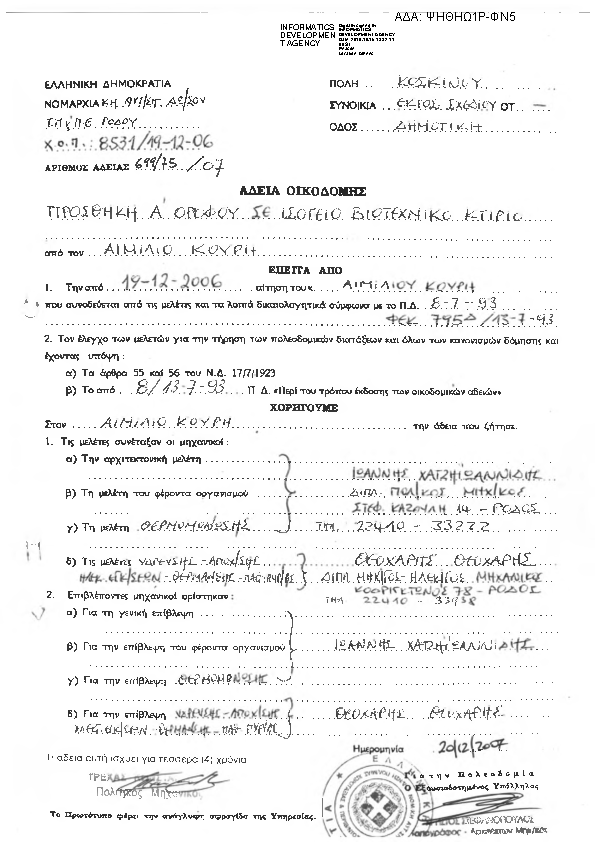 ΑΔΑ: ΨΗΘΗΩ1Ρ-ΦΝ5
INFORMATICS
DEVELOPMEN
T AGENCY
ΕΛΛΗΝΙΚΗ ΔΗΜΟΚΡΑΤΙΑ
ΠΟΛΗ ΚΟΣΚΙΝΟΥ
ΝΟΜΑΡΧΙΑΚΗ
ΣΥΝΟΙΚΙΑ ΕΚΤΟΣ ΣΧΕΔΙΟΥ ΟΤ —
ΡΟΔΟΥ
ΟΔΟΣ ΔΗΜΟΤΙΚΗ
Χ.Ο.Π.: 8531/19-12-06
ΑΡΙΘΜΟΣ ΑΔΕΙΑΣ 699/75 /07
ΑΔΕΙΑ ΟΙΚΟΔΟΜΗΣ
ΠΡΟΣΘΗΚΗ Α' ΟΡΟΦΟΥ ΣΕ ΙΣΟΓΕΙΟ ΒΙΟΤΕΧΝΙΚΟ ΚΤΙΡΙΟ
από τον ΑΙΜΙΛΙΟ ΚΟΥΡΗ
ΕΠΕΙΤΑ ΑΠΟ
1. Την από 19-12-2006 αίτηση του κ. ΑΙΜΙΛΙΟΥ ΚΟΥΡΗ
που συνοδεύεται από τις μελέτες και τα λοιπά δικαιολογητικά σύμφωνα με το Π.Δ. 8-7-93
ΦΕΚ 795Δ/13-7-93
2. Τον έλεγχο των μελετών για την τήρηση των πολεοδομικών διατάξεων και όλων των κανονισμών δόμησης και
έχοντας υπόψη :
α) Τα άρθρα 55 καί 56 του Ν.Δ. 17/7/1923
β) Το από 8/13-7-93 Π Δ. «Περί του τρόπου έκδοσης των οικοδομικών αδειών»
ΧΟΡΗΓΟΥΜΕ
Στον ΑΙΜΙΛΙΟ ΚΟΥΡΗ την άδεια που ζήτησε.
1. Τις μελέτες συνέταξαν οι μηχανικοί :
α) Την αρχιτεκτονική μελέτη
ΙΩΑΝΝΗΣ ΧΑΤΖΗΙΩΑΝΝΙΔΗΣ
β) Τη μελέτη του φέροντα οργανισμού
ΔΙΠΛ ΠΟΛ/ΚΟΣ ΜΗΧ/ΚΟΣ
ΣΤΕΦ ΚΑΖΟΥΛΗ 14 - ΡΟΔΟΣ
γ) Τη μελέτη ΘΕΡΜΟΜΟΝΩΣΗΣ ΤΗΛ 22410 - 33222
δ) Τις μελέτες ΥΔΡΕΥΣΗΣ - ΑΠΟΧ/ΣΗΣ
ΘΕΟΧΑΡΗΣ ΘΕΟΧΑΡΗΣ
ΔΙΠΛ ΜΗΧ/ΓΟΣ-ΗΛΕΚ/ΓΟΣ ΜΗΧΑΝΙΚΟΣ
78 - ΡΟΔΟΣ
2. Επιβλέποντες μηχανικοί ορίστηκαν : ΤΗΛ 22410 - 33938
α) Για τη γενική επίβλεψη
β) Για την επίβλεψη του φέροντα οργανισμού ΙΩΑΝΝΗΣ ΧΑΤΖΗΙΩΑΝΝΙΔΗΣ
γ) Για την επίβλεψη ΘΕΡΜΟΜΟΝΩΣΗΣ
δ) Για την επίβλεψη ΥΔΡΕΥΣΗΣ - ΑΠΟΧ/ΣΗΣ ΘΕΟΧΑΡΗΣ ΘΕΟΧΑΡΗΣ
Ημερομηνία 20/12/2007
Η άδεια αυτή ισχύει για τέσσερα (4) χρόνια
Για την Πολεοδομία
Ο Εξουσιοδοτημένος Υπάλληλος
Πολιτικός Μηχανικός
Το Πρωτότυπο φέρει την ανάγλυφη σφραγίδα της Υπηρεσίας.